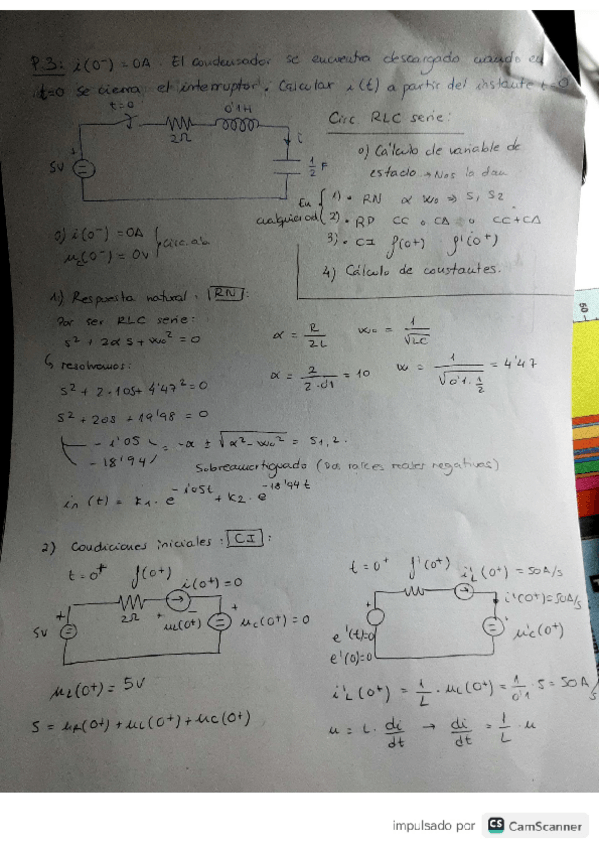 P.3: i(0-) = 0A. El condensador se encuentra descargado cuando en
t=0 se cierra el interruptor. Calcular i(t) a partir del instante t=0
t=0
0'1H
2Ω
5V
i
1/2 F
Circ RLC serie:
0) Cálculo de variable de
estado → Nos lo dan
En cualquier od
1) • RN α w0 ⇒ S1, S2
2) • RP CC o CA o CC+CA
3) • CI f(0+) f'(0+)
4) Cálculo de constantes.
0) i(0-) = 0A
uc(0-) = 0V
1) Respuesta natural: RN:
Por ser RLC serie:
s² + 2α s + w0² = 0
α = R/2L
w0 = 1/√LC
resolvemos:
s² + 2·10s + 4'47² = 0
α = 2/2·0'1 = 10
w = 1/√0'1·1/2 = 4'47
s² + 20s + 19'98 = 0
-1'05
-18'94
= -α ± √α² - w0² = S1,2.
Sobreamortiguado (Dos raíces reales negativas)
in(t) = k1· e^-1'05t + k2· e^-18'94t
2) Condiciones iniciales: CI:
t=0+ f(0+) i(0+)=0
5V
2Ω
uL(0+)
uc(0+)=0
t=0+ f'(0+) i'L(0+) = 50A/s
i'(0+)=50A/s
e'(t)=0
e'(0)=0
u'c(0+)
uL(0+) = 5V
5 = uR(0+) + uL(0+) + uc(0+)
i'L(0+) = 1/L · uL(0+) = 1/0'1 · 5 = 50A/s
u = L· di/dt → di/dt = 1/L · u
impulsado por CS CamScanner